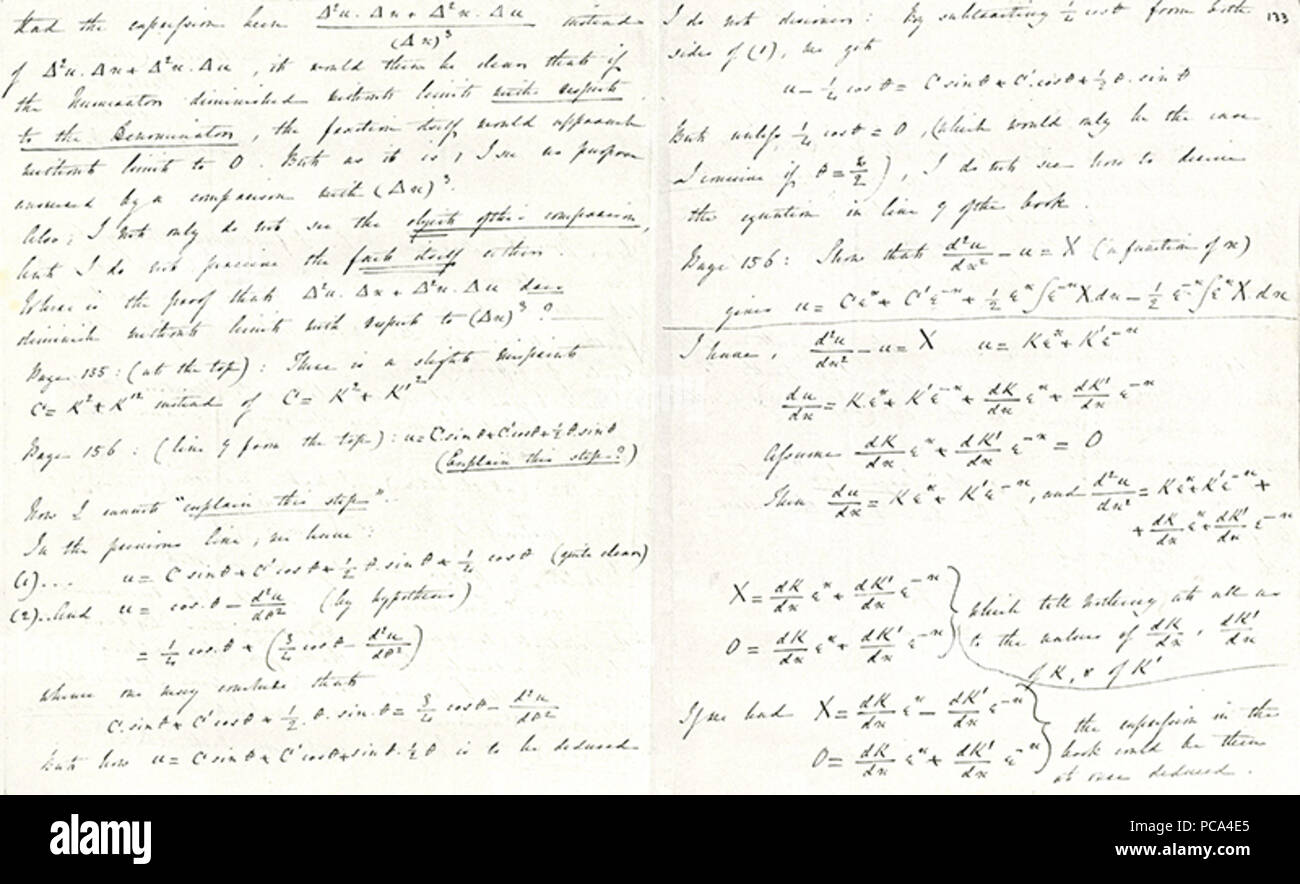 had the expression been Δ²u.Δx + Δ²x.Δu / (Δx)³ instead
of Δ²u.Δx + Δ²x.Δu, it would then be clear that if
the Numerator diminished without limit with respect
to the Denominator, the fraction itself would approach
without limit to 0. But as it is, I see no purpose
answered by a comparison with (Δx)³.
Also; I not only do not see the object of this comparison,
but I do not perceive the fact itself either.
Where is the proof that Δ²u.Δx + Δ²x.Δu does
diminish without limit with respect to (Δx)³?
Page 135: (at the top): There is a slight misprint
C = K² + K'² instead of C = K² + K'²
Page 156: (line 9 from the top): u = C sin θ + C' cos θ + ½ θ. sin θ
(Explain this step?)
Now I cannot "explain this step".
In the previous line, we have:
(1)... u = C sin θ + C' cos θ + ½ θ. sin θ + ¼ cos θ (quite clear)
(2).. And u = cos. θ − d²u/dθ² (by hypothesis)
= ¼ cos. θ + (¾ cos θ − d²u/dθ²)
whence one may conclude that
C. sin θ + C' cos θ + ½. θ. sin. θ = ¾ cos θ − d²u/dθ²
But how u = C sin θ + C' cos θ + sin θ. ½ θ is to be deduced
133
I do not discover: By subtracting ¼ cos θ from both
sides of (1), we get
u − ¼ cos θ = C sin θ + C'. cos θ + ½ θ. sin θ
But unless ¼ cos θ = 0, (which would only be the case
I conceive if θ = π/2), I do not see how to derive
the equation in line 9 of the book.
Page 156: Show that d²u/dx² − u = X (a function of x)
gives u = Cεˣ + C'ε⁻ˣ + ½ εˣ∫ε⁻ˣX.dx − ½ ε⁻ˣ∫εˣX.dx
I have, d²u/dx² − u = X u = Kεˣ + K'ε⁻ˣ
du/dx = Kεˣ + K'ε⁻ˣ + dK/dx εˣ + dK'/dx ε⁻ˣ
Assume dK/dx εˣ + dK'/dx ε⁻ˣ = 0
Then du/dx = Kεˣ + K'ε⁻ˣ, and d²u/dx² = Kεˣ + K'ε⁻ˣ +
+ dK/dx εˣ + dK'/dx ε⁻ˣ
X = dK/dx εˣ + dK'/dx ε⁻ˣ
0 = dK/dx εˣ + dK'/dx ε⁻ˣ
which tell nothing at all as
to the values of dK/dx, dK'/dx
of K, & of K'
If we had X = dK/dx εˣ − dK'/dx ε⁻ˣ
0 = dK/dx εˣ + dK'/dx ε⁻ˣ
the expression in the
book could be then
at once deduced.
alamy
Image ID: PCA4E5
www.alamy.com